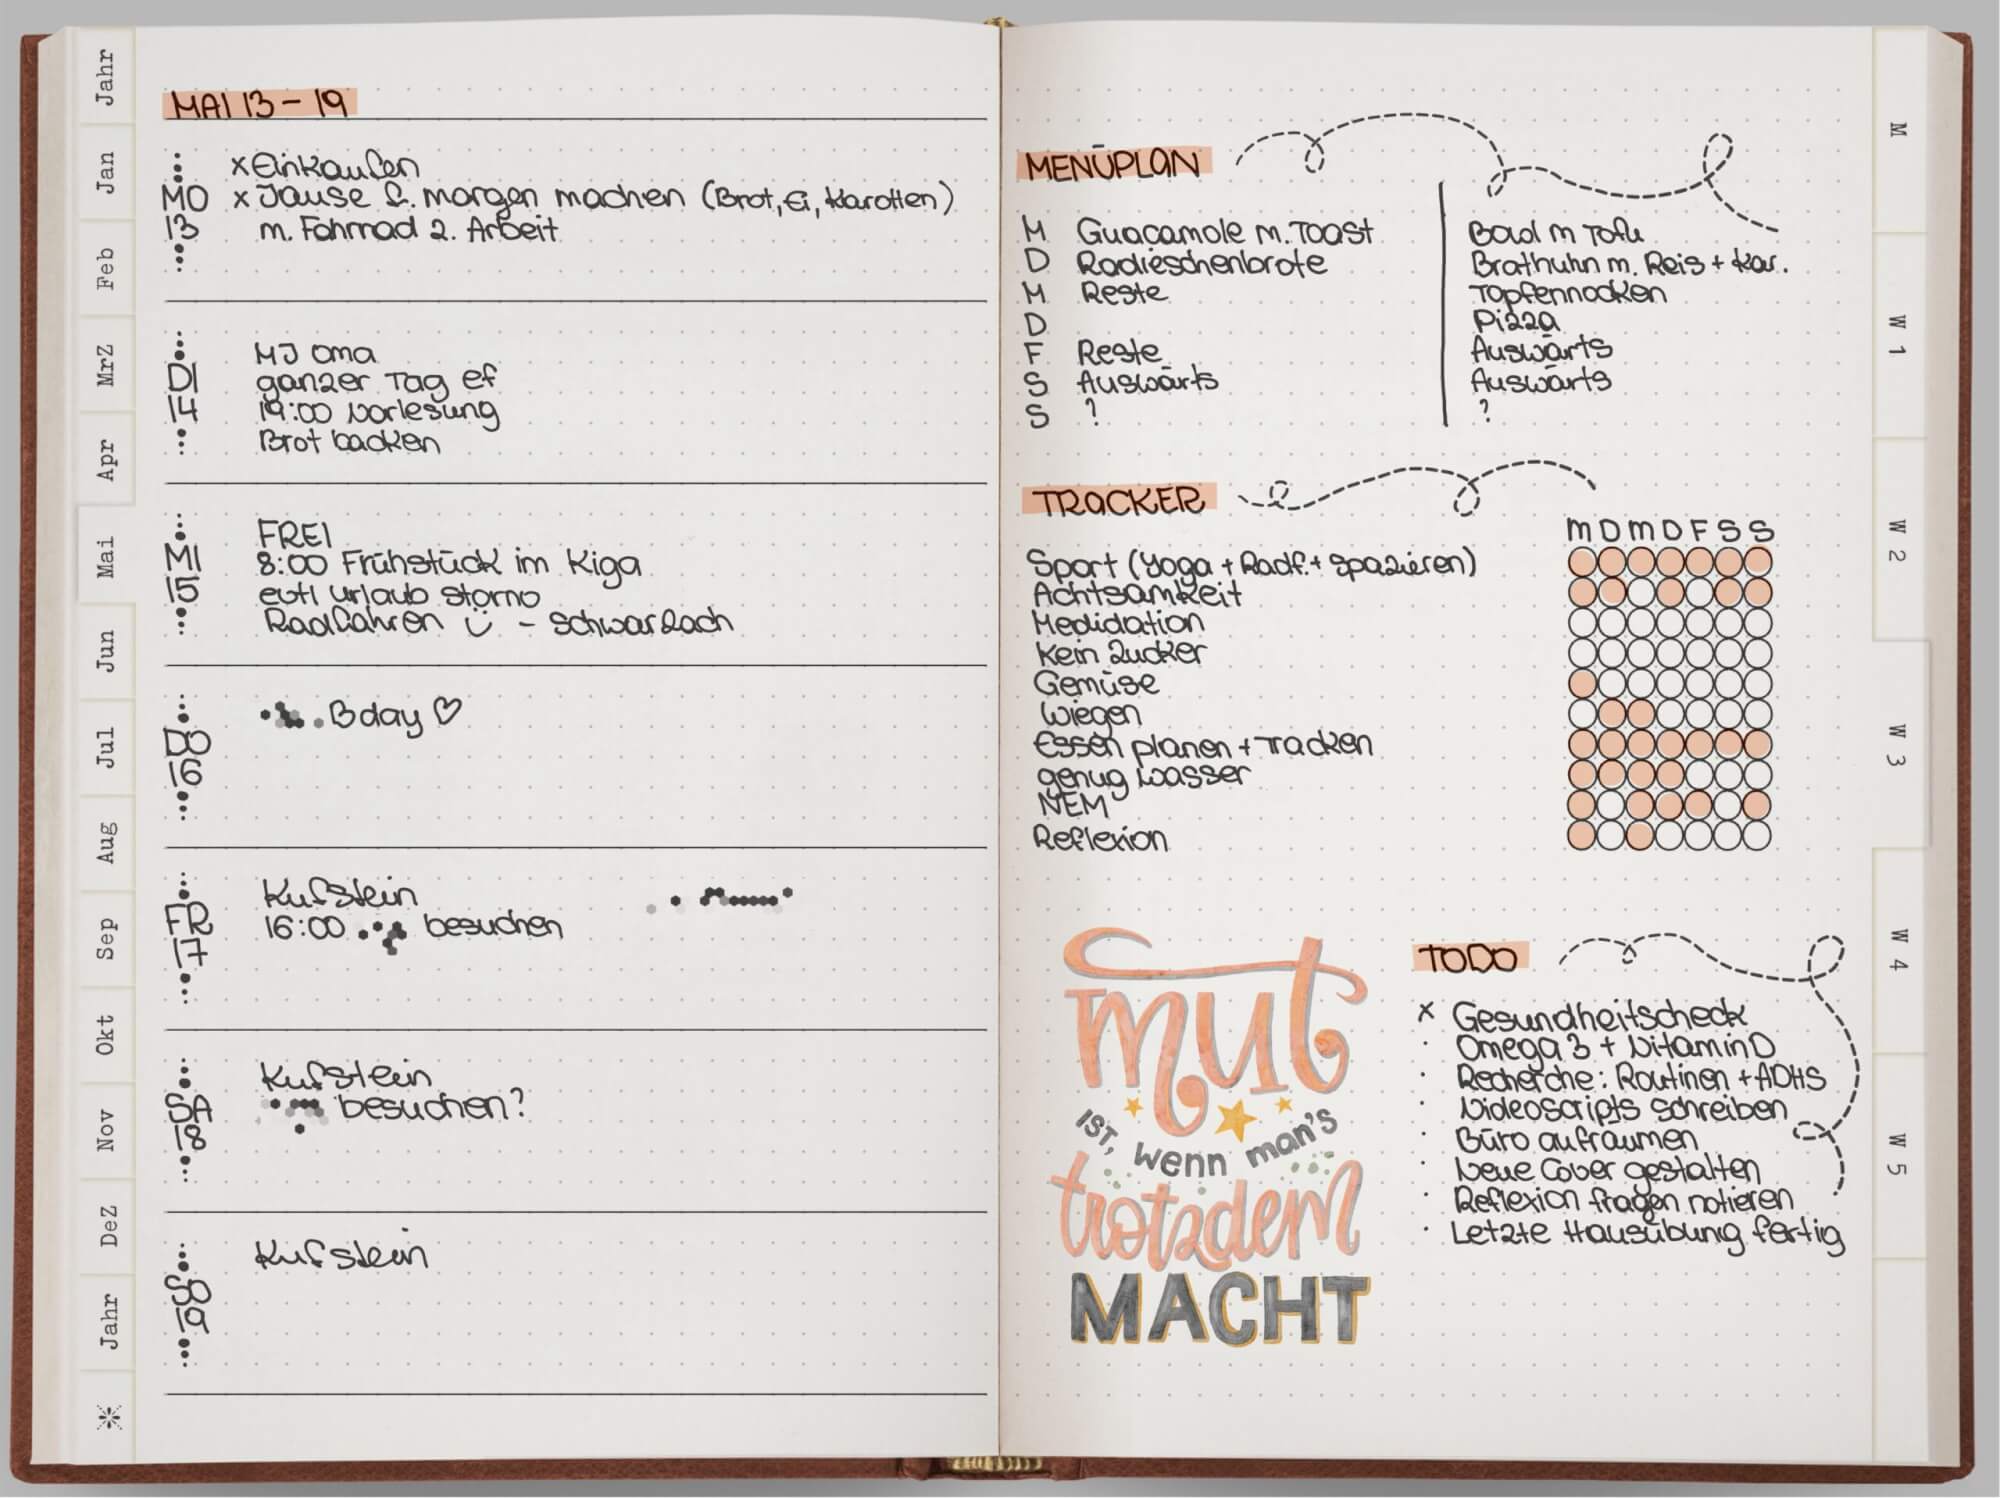 Jahr
Jan
Feb
MrZ
Apr
Mai
Jun
Jul
Aug
Sep
Okt
Nov
DeZ
Jahr
MAI 13 - 19
MO
13
x Einkaufen
x Jause f. morgen machen (Brot, Ei, Karotten)
m. Fahrrad z. Arbeit
DI
14
MJ Oma
ganzer Tag ef
19:00 Vorlesung
Brot backen
MI
15
FREI
8:00 Frühstück im Kiga
evtl Urlaub storno
Radfahren - Schwarzach
DO
16
Bday ♡
FR
17
Kufstein
16:00 besuchen
SA
18
Kufstein
besuchen?
SO
19
Kufstein
MENÜPLAN
M Guacamole m. Toast Bowl m Tofu
D Radieschenbrote Brathuhn m. Reis + Kar.
M Reste Topfennocken
D Pizza
F Reste Auswärts
S Auswärts Auswärts
S ? ?
TRACKER
M D M D F S S
Sport (Yoga + Radf. + Spazieren)
Achtsamkeit
Medidation
Kein Zucker
Gemüse
Wiegen
Essen planen + Tracken
genug Wasser
NEM
Reflexion
mut
IST, wenn man's
trotzdem
MACHT
TODO
x Gesundheitscheck
· Omega 3 + Vitamin D
· Recherche: Routinen + ADHS
· Videoscripts schreiben
· Büro aufräumen
· Neue Cover gestalten
· Reflexion fragen notieren
· Letzte Hausübung fertig
M
W 1
W 2
W 3
W 4
W 5